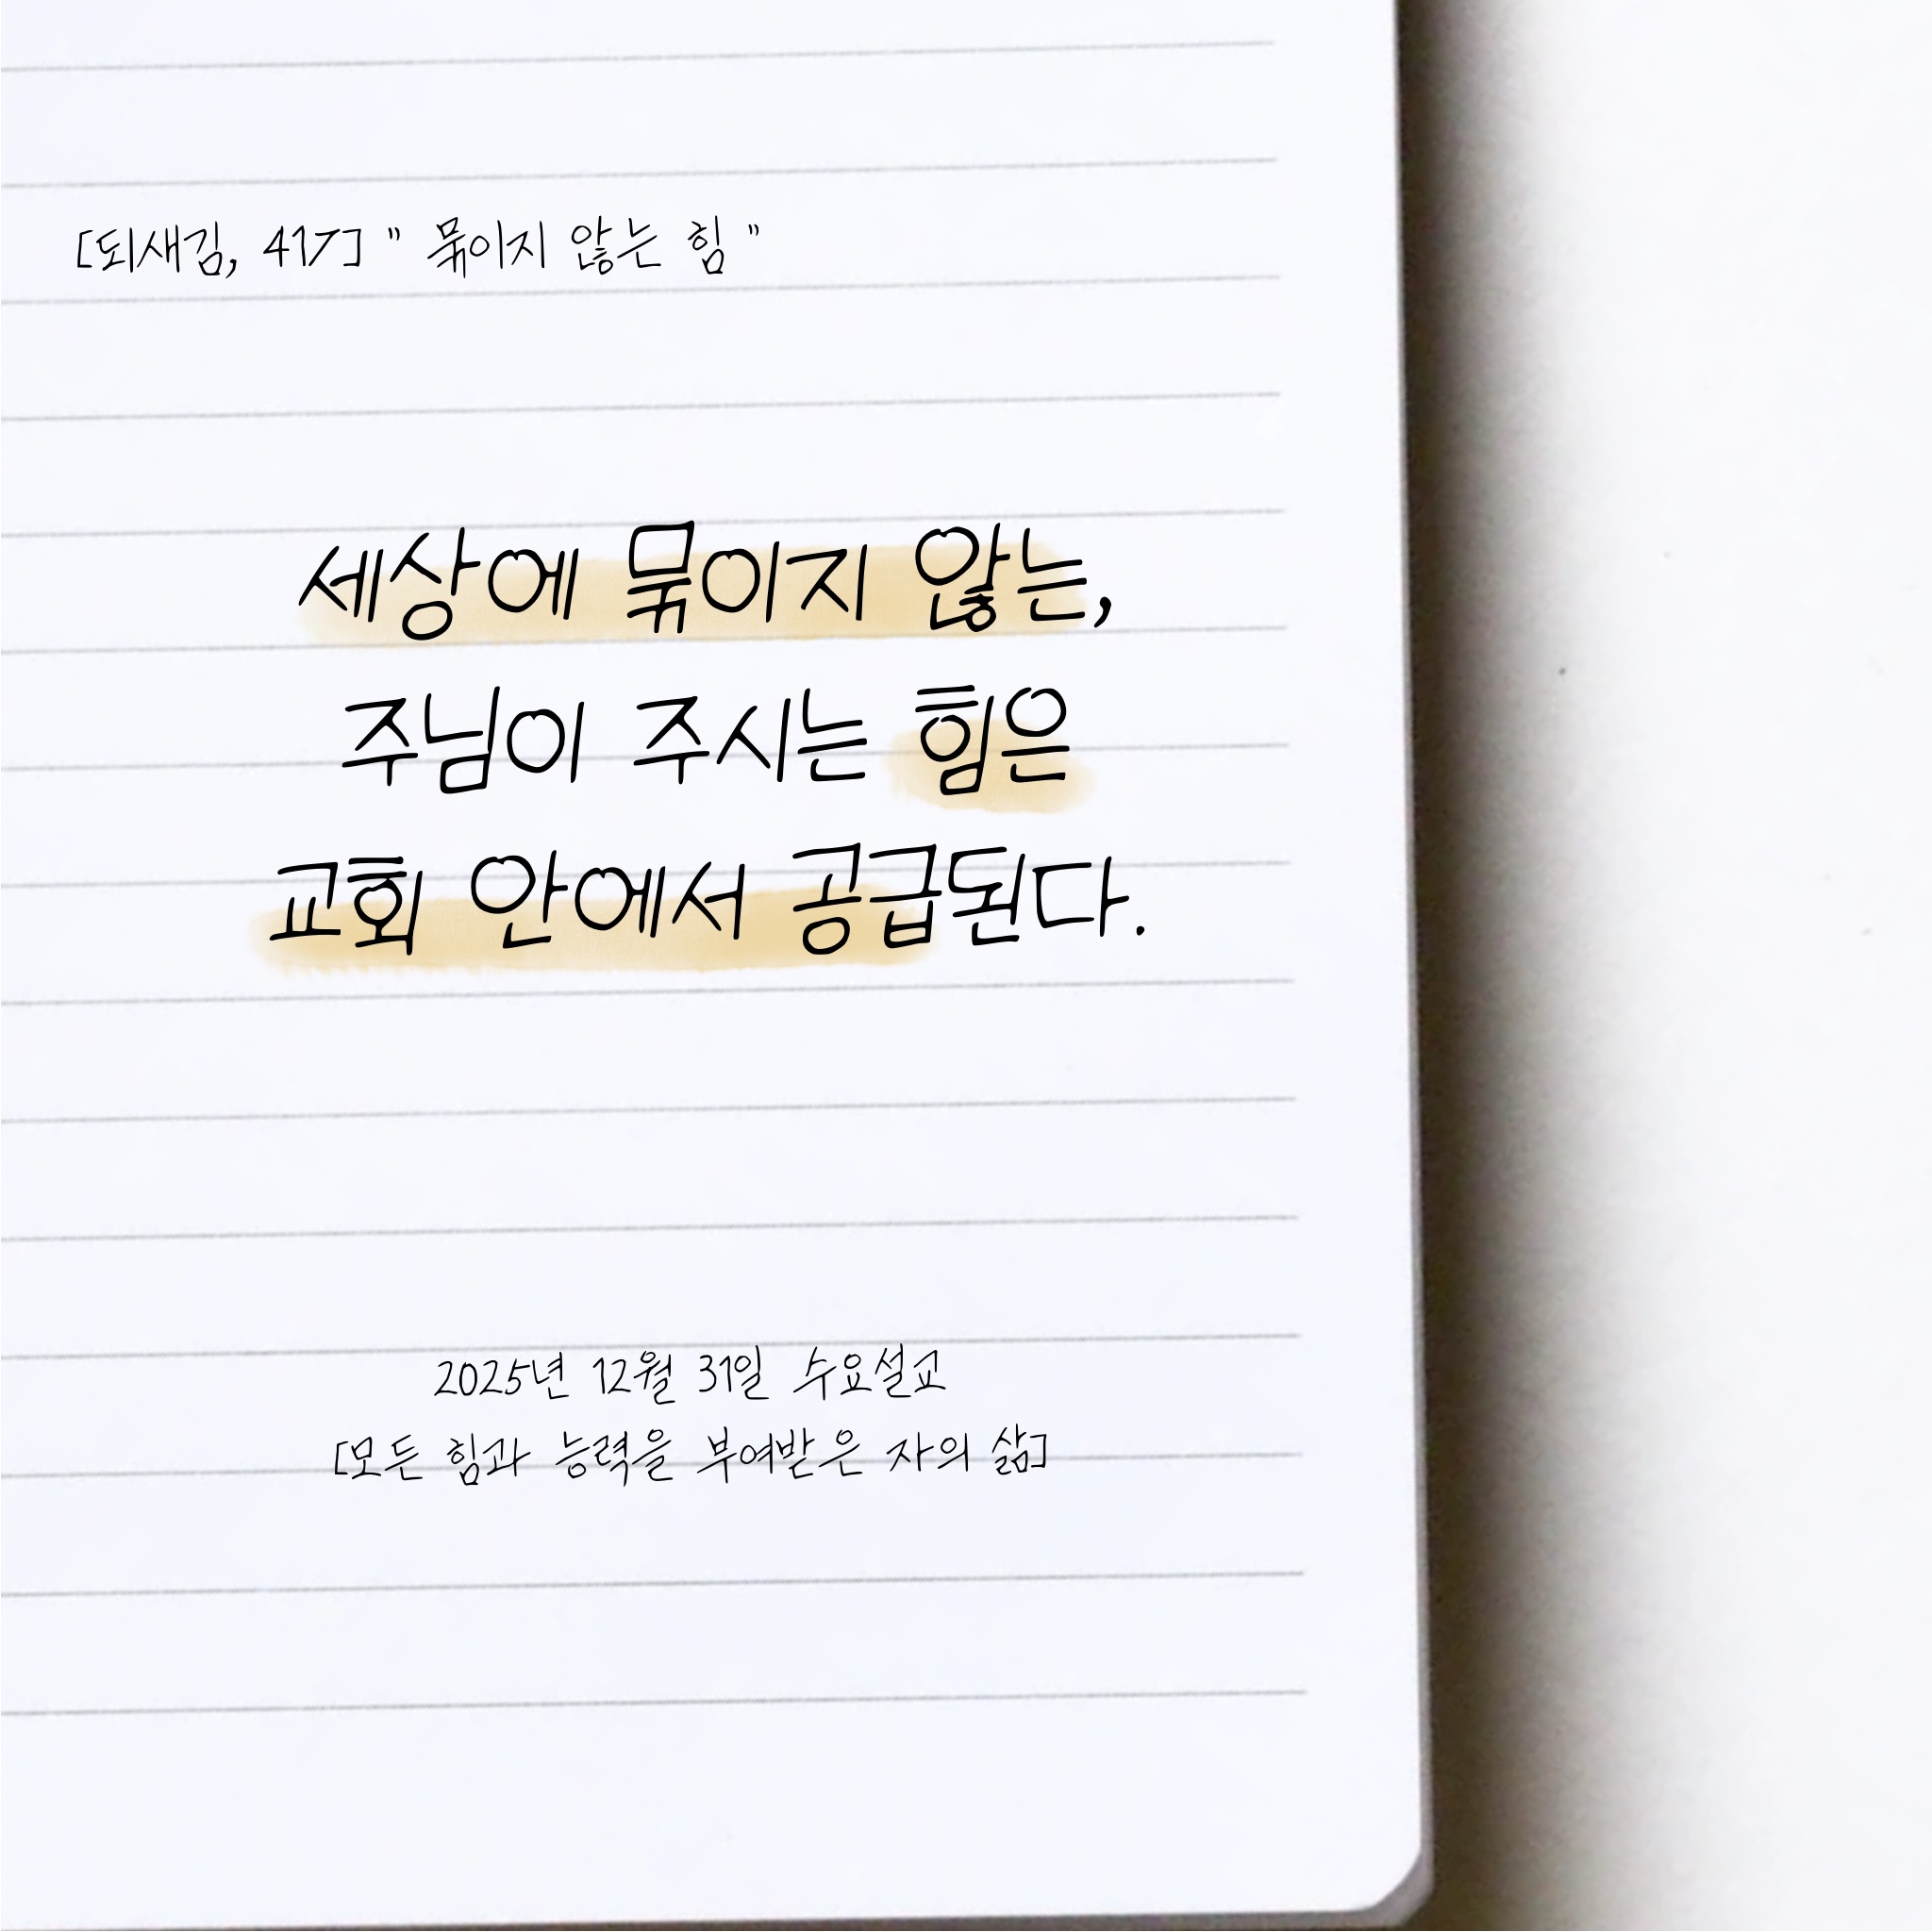 [되새김, 417] " 묶이지 않는 힘 "
세상에 묶이지 않는,
주님이 주시는 힘은
교회 안에서 공급된다.
2025년 12월 31일 수요설교
[모든 힘과 능력을 부여받은 자의 삶]